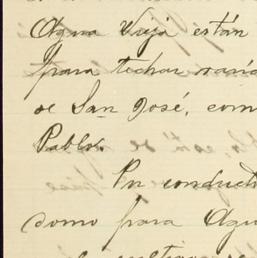 Agua Vieja están
para techar varia
de San José, com
Pablo.
Por conducto
como para Agu